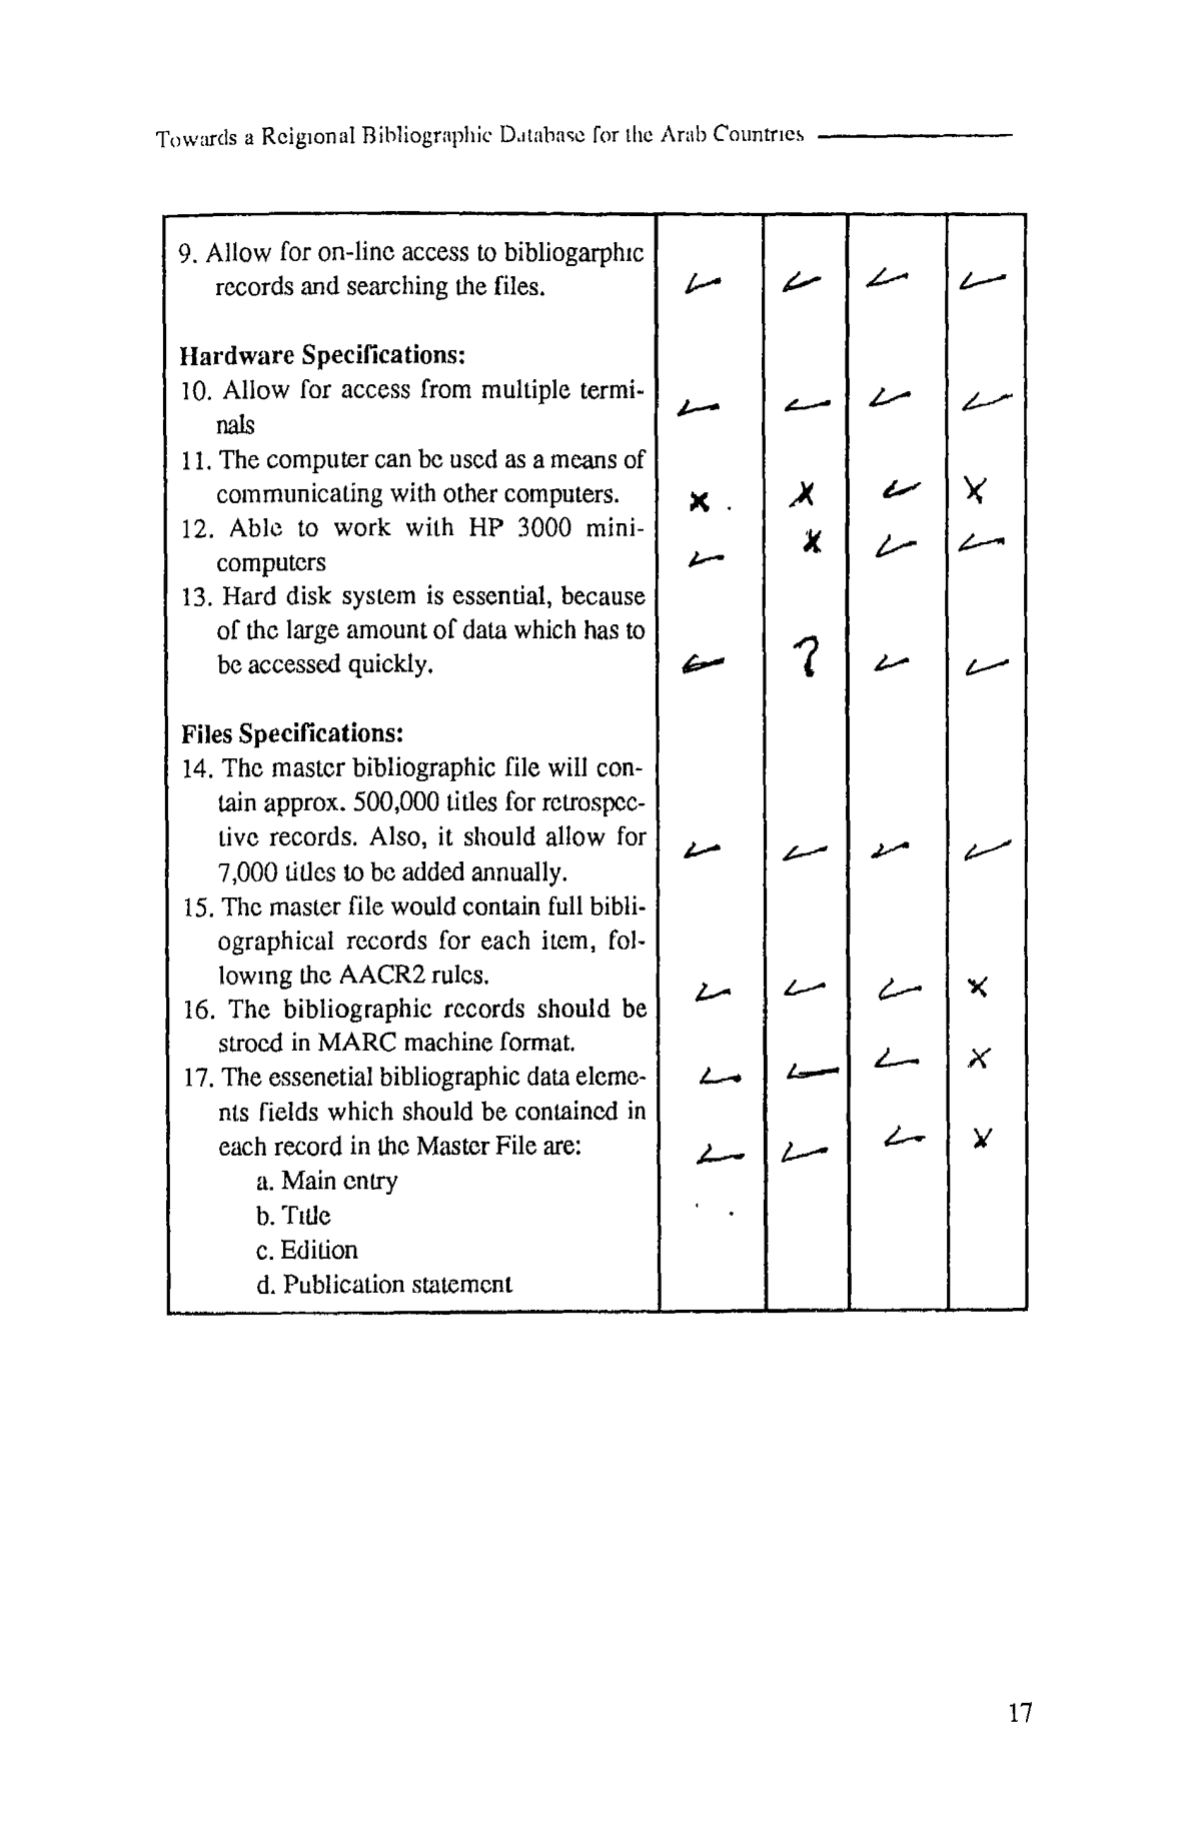 Towards a Reigional Bibliographic Database for the Arab Countries
9. Allow for on-line access to bibliogarphic
records and searching the files.
✓ ✓ ✓ ✓
Hardware Specifications:
10. Allow for access from multiple termi-
nals
✓ ✓ ✓ ✓
11. The computer can be used as a means of
communicating with other computers.
x x ✓ x
12. Able to work with HP 3000 mini-
computers
✓ x ✓ ✓
13. Hard disk system is essential, because
of the large amount of data which has to
be accessed quickly.
✓ ? ✓ ✓
Files Specifications:
14. The master bibliographic file will con-
tain approx. 500,000 titles for retrospec-
tive records. Also, it should allow for
7,000 titles to be added annually.
✓ ✓ ✓ ✓
15. The master file would contain full bibli-
ographical records for each item, fol-
lowing the AACR2 rules.
✓ ✓ ✓ x
16. The bibliographic records should be
stroed in MARC machine format.
✓ ✓ ✓ x
17. The essenetial bibliographic data eleme-
nts fields which should be contained in
each record in the Master File are:
✓ ✓ ✓ x
a. Main entry
b. Title
c. Edition
d. Publication statement
17